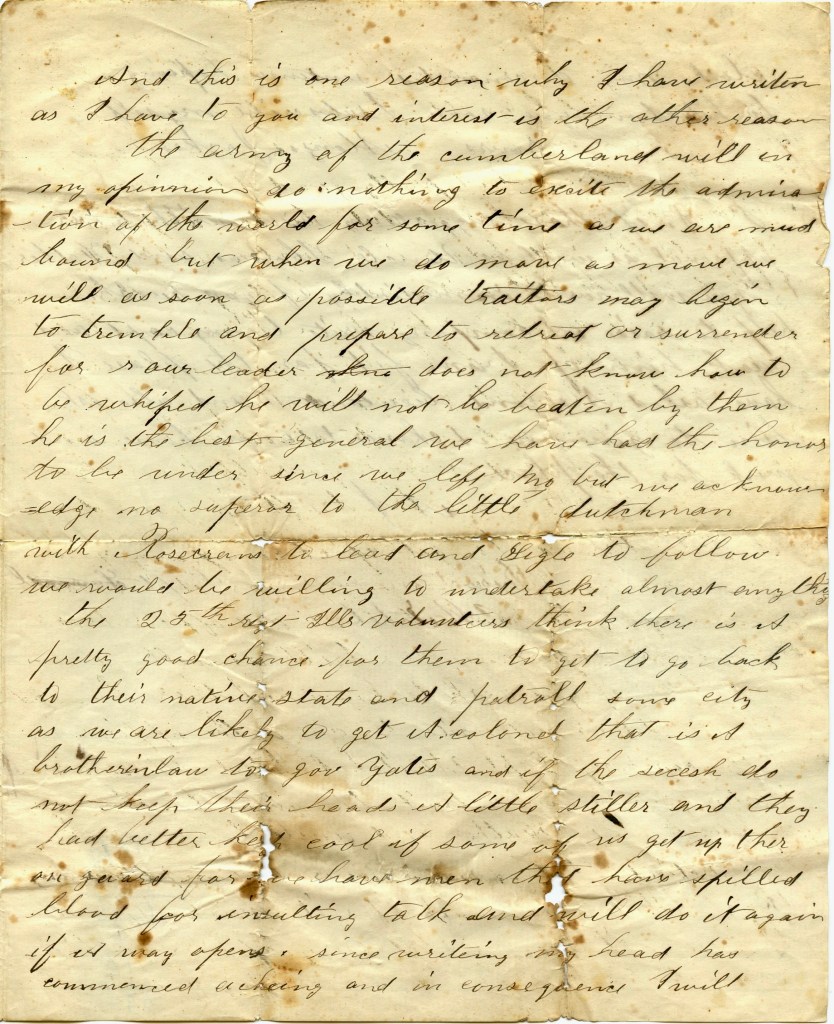 And this is one reason why I have writen
as I have to you and interest is the other reason
the army of the cumberland will in
my opinnion do nothing to excite the admira
-tion of the world for some time as we are mud
bound but when we do move as move we
will as soon as possible traitors may begin
to tremble and prepare to retreat or surrender
for our leader does not know how to
be whiped he will not be beaten by them
he is the best general we have had the honor
to be under since we left Mo but we acknow
=edge no superor to the little dutchman
with Rosecrans to lead and Sigle to follow
we would be willing to undertake almost anything
the 25th regt Ills volunteers think there is A
pretty good chance for them to get to go back
to their native state and patroll some city
as we are likely to get A colonel that is A
brotherinlaw to gov Yates and if the secesh do
not keep their heads A little stiller and they
had better keep cool if some of us get up ther
on guard for we have men that have spilled
blood for insulting talk and will do it again
if A way opens. since writeing my head has
commenced acheing and in consequence I will